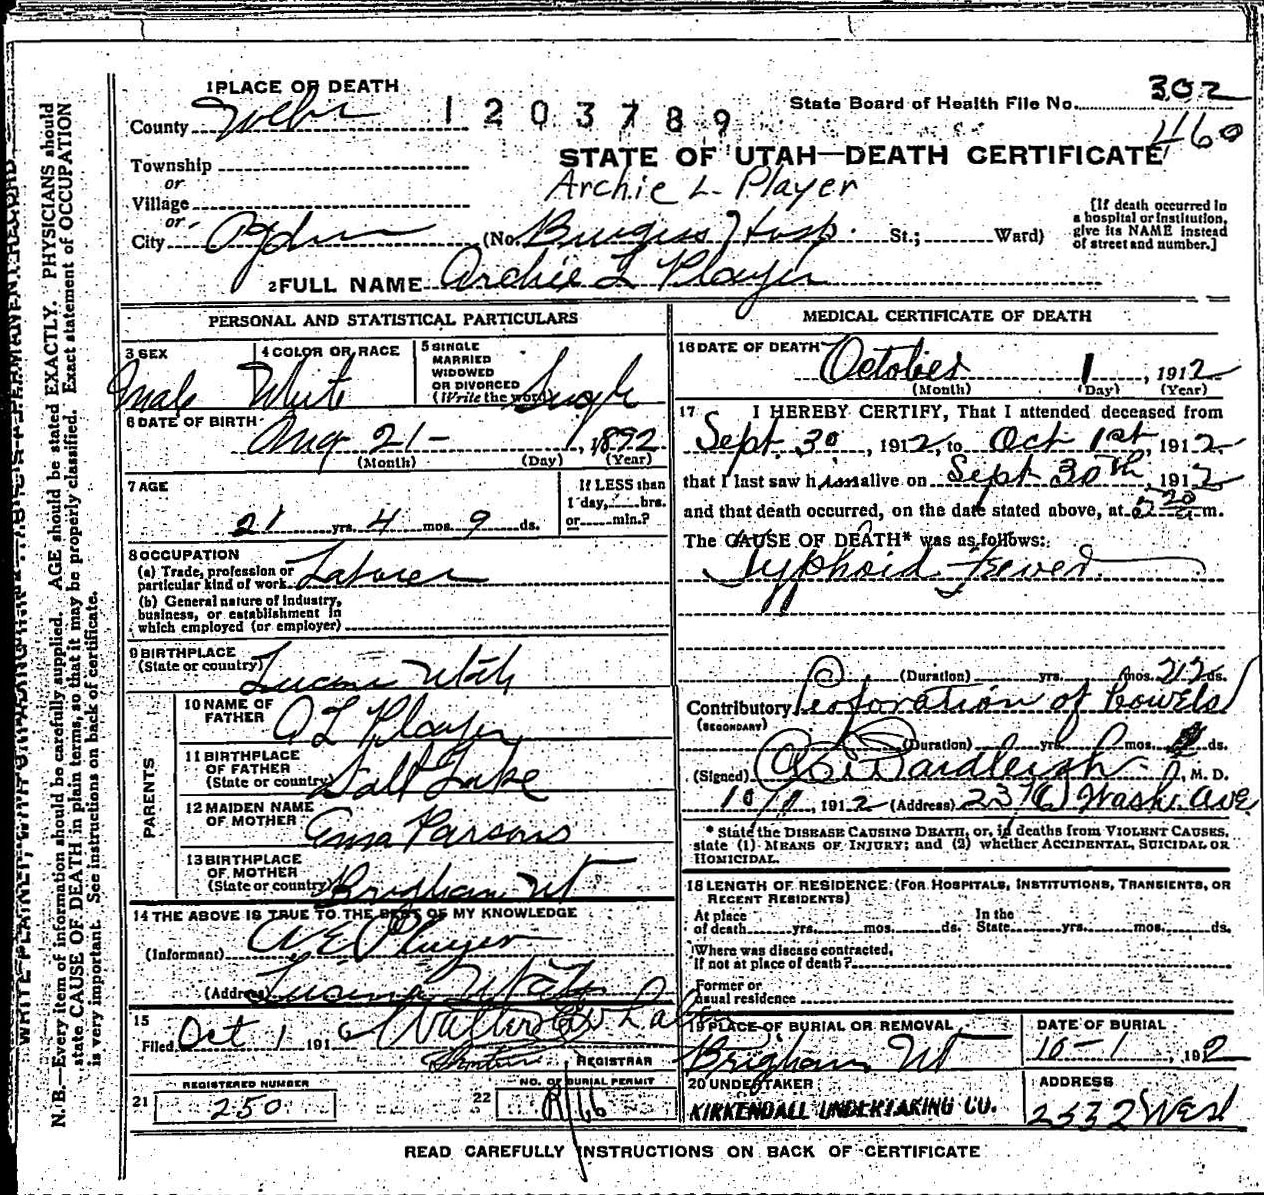 1 PLACE OF DEATH
1203789
State Board of Health File No. 302
460
County Weber
STATE OF UTAH—DEATH CERTIFICATE
Township
or
Archie L. Player
Village
or
City Ogden (No. Burgess Hosp. St.; Ward)
[If death occurred in
a hospital or institution,
give its NAME instead
of street and number.]
2 FULL NAME Archie L Player
PERSONAL AND STATISTICAL PARTICULARS
3 SEX
Male
4 COLOR OR RACE
White
5 SINGLE
MARRIED
WIDOWED
OR DIVORCED
(Write the word) Single
6 DATE OF BIRTH
Aug 21- , 1892
(Month) (Day) (Year)
7 AGE
21 yrs. 4 mos. 9 ds.
If LESS than
1 day, hrs.
or min.?
8 OCCUPATION
(a) Trade, profession or
particular kind of work Laborer
(b) General nature of industry,
business, or establishment in
which employed (or employer)
9 BIRTHPLACE
(State or country) Lucine Utah
PARENTS
10 NAME OF
FATHER
Player
11 BIRTHPLACE
OF FATHER
(State or country) Salt Lake
12 MAIDEN NAME
OF MOTHER
Anna Parsons
13 BIRTHPLACE
OF MOTHER
(State or country) Brigham UT
14 THE ABOVE IS TRUE TO THE BEST OF MY KNOWLEDGE
(Informant) Player
(Address) Utah
15
Filed Oct 1 191 Walter
REGISTRAR
REGISTERED NUMBER
21 250
NO. OF BURIAL PERMIT
22
MEDICAL CERTIFICATE OF DEATH
16 DATE OF DEATH
October 1 , 1912
(Month) (Day) (Year)
17 I HEREBY CERTIFY, That I attended deceased from
Sept. 30, 1912, to Oct 1st, 1912
that I last saw him alive on Sept 30th, 1912
and that death occurred, on the date stated above, at 5 20 a m.
The CAUSE OF DEATH* was as follows:
Typhoid Fever
(Duration) yrs. mos. 21 ds.
Contributory Perforation of bowels
(SECONDARY)
(Duration) yrs. mos. ds.
(Signed) , M. D.
10/1, 1912 (Address) Wash. Ave
* State the DISEASE CAUSING DEATH, or, in deaths from VIOLENT CAUSES,
state (1) MEANS OF INJURY; and (2) whether ACCIDENTAL, SUICIDAL OR
HOMICIDAL.
18 LENGTH OF RESIDENCE (FOR HOSPITALS, INSTITUTIONS, TRANSIENTS, OR
RECENT RESIDENTS)
At place
of death yrs. mos. ds.
In the
State yrs. mos. ds.
Where was disease contracted,
If not at place of death?
Former or
usual residence
19 PLACE OF BURIAL OR REMOVAL
Brigham UT
DATE OF BURIAL
10-1 , 1912
20 UNDERTAKER
KIRKENDALL UNDERTAKING CO.
ADDRESS
2532 Wash
READ CAREFULLY INSTRUCTIONS ON BACK OF CERTIFICATE
WRITE PLAINLY, WITH UNFADING INK—THIS IS A PERMANENT RECORD
N. B.—Every item of information should be carefully supplied. AGE should be stated EXACTLY. PHYSICIANS should
state CAUSE OF DEATH in plain terms, so that it may be properly classified. Exact statement of OCCUPATION
is very important. See instructions on back of certificate.